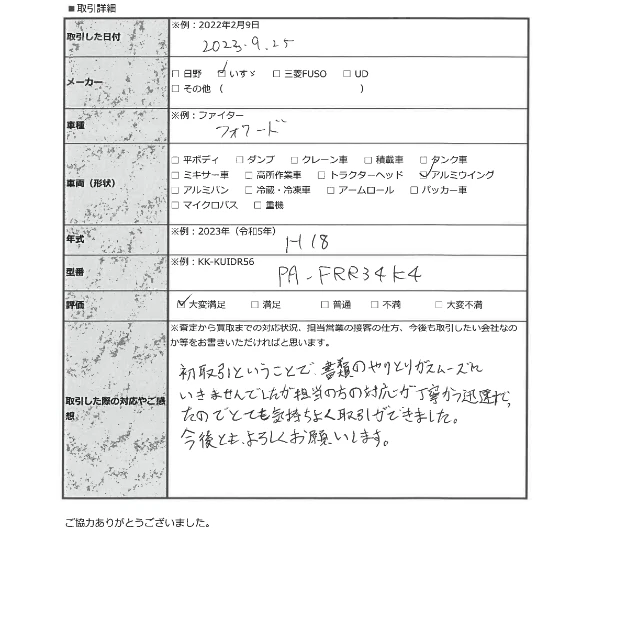 ■ 取引詳細
取引した日付
※例：2022年2月9日
2023.9.25
メーカー
□ 日野 ☑ いすゞ □ 三菱FUSO □ UD
□ その他 （ ）
車種
※例：ファイター
フォワード
車両（形状）
□ 平ボディ □ ダンプ □ クレーン車 □ 積載車 □ タンク車
□ ミキサー車 □ 高所作業車 □ トラクターヘッド ☑ アルミウイング
□ アルミバン □ 冷蔵・冷凍車 □ アームロール □ パッカー車
□ マイクロバス □ 重機
年式
※例：2023年（令和5年）
H18
型番
※例：KK-KUIDR56
PA-FRR34K4
評価
☑ 大変満足 □ 満足 □ 普通 □ 不満 □ 大変不満
取引した際の対応やご感想
※査定から買取までの対応状況、担当営業の接客の仕方、今後も取引したい会社なの
か等をお書きいただければと思います。
初取引ということで、書類のやりとりがスムーズに
いきませんでしたが担当の方の対応が丁寧かつ迅速で
たのでとても気持ちよく取引ができました。
今後とも、よろしくお願いします。
ご協力ありがとうございました。